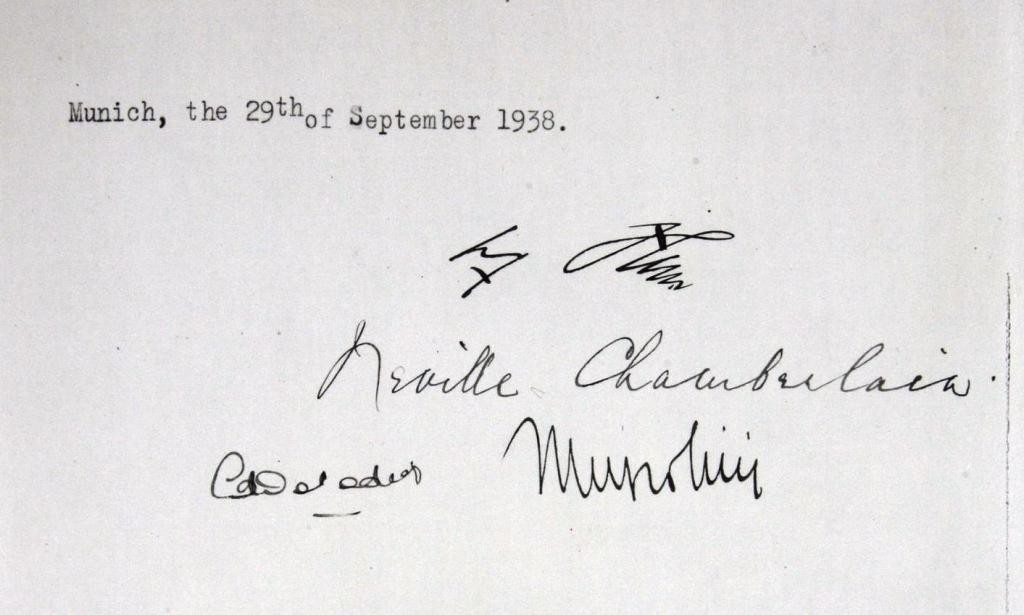 Munich, the 29th of September 1938.
Neville Chamberlain.
Mussolini